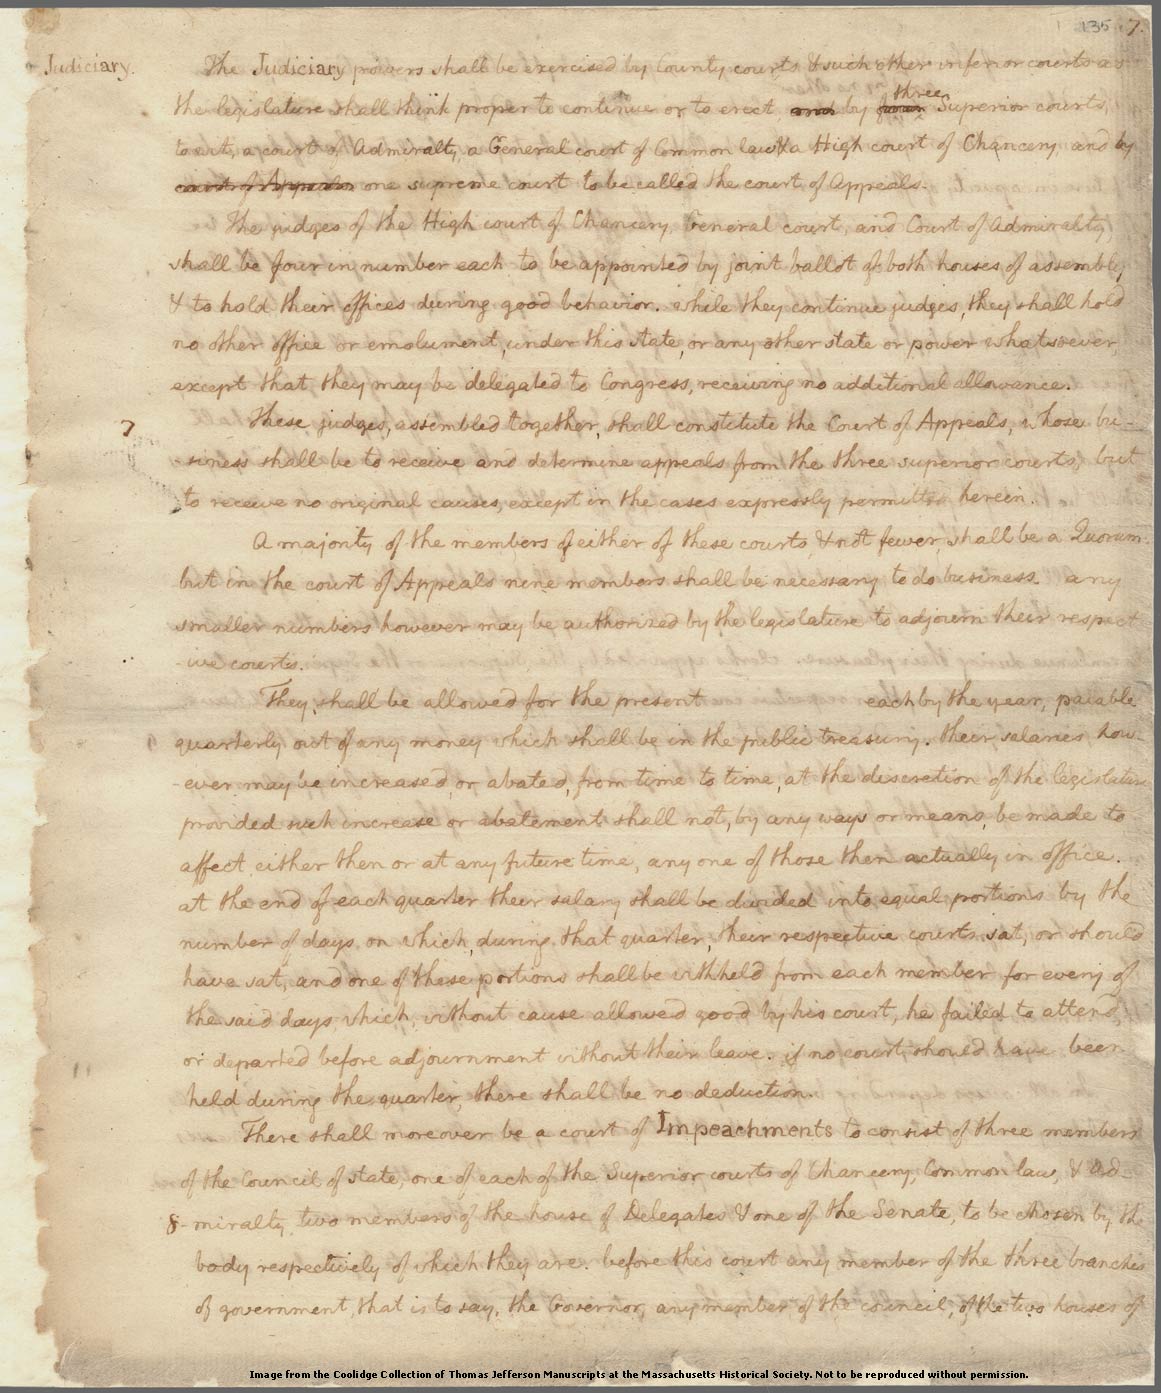 135 7.
Judiciary.
The Judiciary powers shall be exercised by County courts & such other inferior courts as
the legislature shall think proper to continue or to erect, and by four three Superior courts,
to wit, a court of Admiralty, a General court of Common law & a High court of Chancery, and by
court of Appeals one supreme court to be called the court of Appeals.
The judges of the High court of Chancery, General court, and Court of Admiralty,
shall be four in number each to be appointed by joint ballot of both houses of assembly
& to hold their offices during good behavior. while they continue judges, they shall hold
no other office or emolument, under this state, or any other state or power whatsoever,
except that they may be delegated to Congress, receiving no additional allowance.
7 These judges, assembled together, shall constitute the Court of Appeals, whose bu-
-siness shall be to receive and determine appeals from the three superior courts, but
to receive no original causes, except in the cases expressly permitted herein.
A majority of the members of either of these courts, & not fewer, shall be a Quorum
but in the court of Appeals nine members shall be necessary to do business. any
smaller numbers however may be authorized by the legislature to adjourn their respect
-ive courts.
They shall be allowed for the present each by the year, paiable
quarterly out of any money which shall be in the public treasury. their salaries how-
-ever may be increased or abated, from time to time, at the discretion of the legislature
provided such increase or abatement shall not, by any ways or means, be made to
affect either then or at any future time, any one of those then actually in office.
at the end of each quarter their salary shall be divided into equal portions by the
number of days on which, during that quarter, their respective courts sat, or should
have sat, and one of these portions shall be withheld from each member for every of
the said days which, without cause allowed good by his court, he failed to attend,
or departed before adjournment without their leave. if no court should have been
held during the quarter, there shall be no deduction.
There shall moreover be a court of Impeachments to consist of three members
of the Council of state, one of each of the Superior courts of Chancery, Common law, & Ad-
8 -miralty, two members of the house of Delegates & one of the Senate, to be chosen by the
body respectively of which they are. before this court any member of the three branches
of government, that is to say, the Governor, any member of the council, of the two houses of
Image from the Coolidge Collection of Thomas Jefferson Manuscripts at the Massachusetts Historical Society. Not to be reproduced without permission.